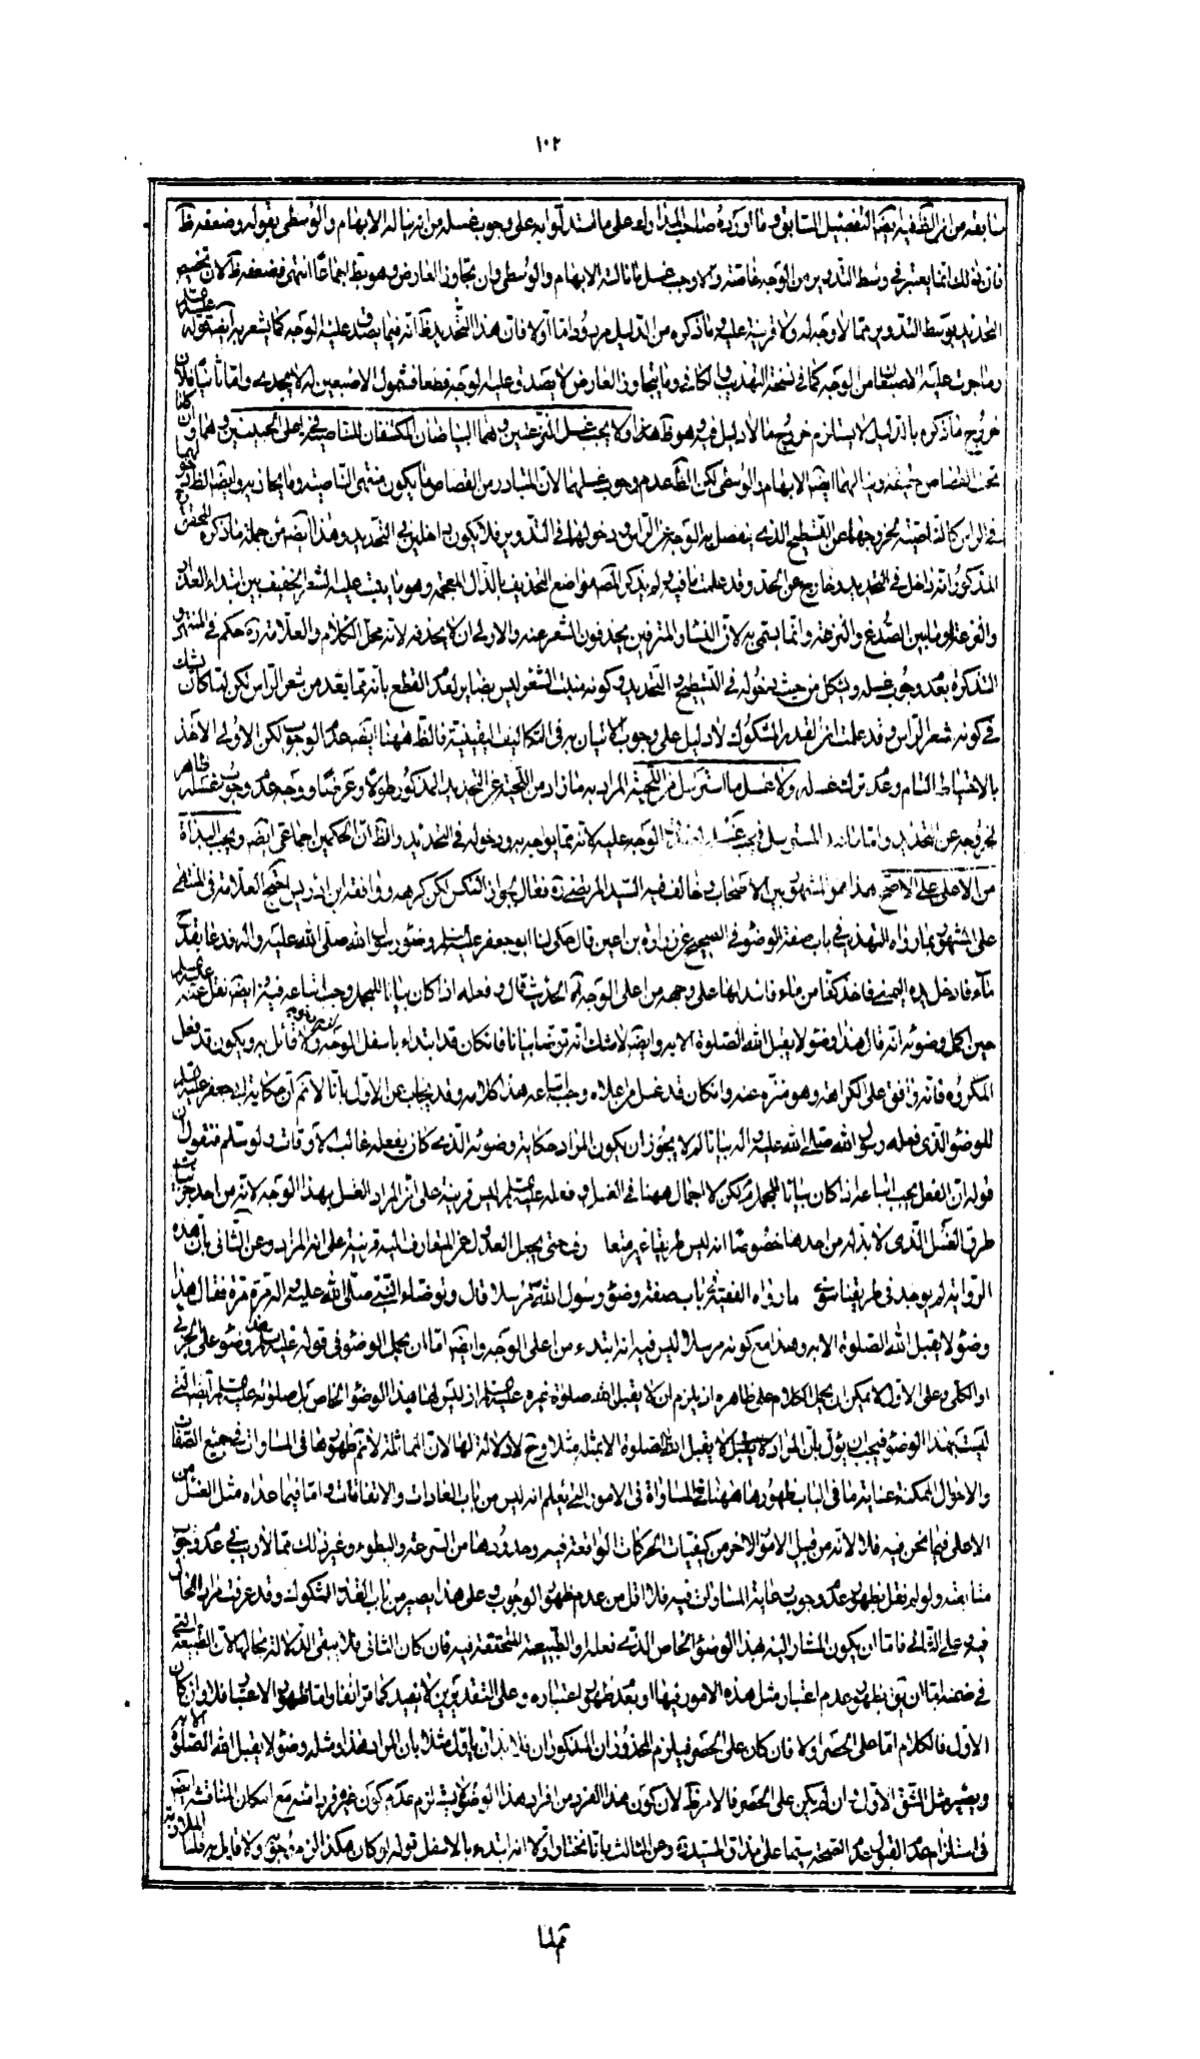 ١٠٢
سابقه من ان الظ فيه ايضا التفصيل السابق وما اورده صاحب على ما استدلوا به على وجوب غسله من انه يناله الابهام والوسطى بقوله وضعفه ظ
فان ذلك انما يعتبر في وسط التدوير من الوجه خاصة والا وجب غسل ما نالته الابهام والوسطى وان تجاوز العارض وهو بط اجماعا انتهى فضعفه ظ لان تخصيص
التحديد بوسط التدوير مما لا وجه له ولا قرينة عليه وما ذكره من الدليل مردود اما اولا فان هذا التحديد ظ انه فيما يصدق عليه الوجه كما يشعر به ايضا قوله عليه السلم
وما جرت عليه الاصبعان من الوجه كما في نسخة التهذيب والكافي وما يتجاوز العارض لا يصدق عليه الوجه قطعا فشمول الاصبعين له لا يجدي واما ثانيا فلان
خروج ما ذكره بالدليل لا يستلزم خروج ما لا دليل فيه وهو ظ هذا ولا يجب غسل النزعتين وهما البياضان المكتنفان للناصية في اعلى الجبينين وهما وان كانا
تحت القصاص حقيقة وينالهما ايضا الابهام والوسطى لكن الظ عدم وجوب غسلهما لان المتبادر من القصاص ما يكون منتهى الناصية وما يحاذيه وايضا الظ دخولهما
في الراس كالناصية لخروجهما عن التسطيح الذي ينفصل به الوجه عن الراس ودخولهما في التدوير فلا يكون داخلين في التحديد وهذا ايضا من جملة ما ذكره المحقق
المذكور انه داخل في التحديد وخارج عن الحد وقد علمت ما فيه ولم يذكر المصه مواضع التحذيف بالذال المعجمة وهو ما ينبت عليه الشعر الخفيف بين ابتداء العذار
والنزعة او ما بين الصدغ والنزعة وانما سمى به لان النساء والمترفين يحذفون الشعر عنه والاولى ان لا يحذفه لانه محل الكلام والعلامة ره حكم في المنتهى و
التذكرة بعدم وجوب غسله ويشكل من حيث دخوله في التسطيح والتحديد وكونه منبت الشعر ليس بضاير لعدم القطع بانه مما يعد من شعر الراس لكن لما كان يشك
في كونه شعر الراس وقد علمت ان القدر المشكوك لا دليل على وجوب الاتيان به في التكاليف اليقينية فالظ ههنا ايضا عدم الوجوب لكن الاولى الاخذ
بالاحتياط التام وعدم ترك غسله ولا غسل ما استرسل من اللحية المراد به ما زاد من اللحية عن التحديد المذكور طولا وعرضا ووجه عدم وجوب غسله ظاهر
لخروجه عن التحديد واما المسترسل فيجب غسل الوجه عليه لانه مما يواجه به ودخوله في التحديد والظ ان الحكمين اجماعي ايضا ويجب البداة
من الاعلى على الاصح هذا هو المشهور بين الاصحاب وخالف فيه السيد المرتضى ره فقال بجواز النكس لكن كرهه ووافقه ابن ادريس احتج العلامة في المنتهى
على المشهور بما رواه التهذيب في باب صفة الوضوء في الصحيح عن زرارة بن اعين قال حكى لنا ابو جعفر عليه السلم وضوء رسول الله صلى الله عليه واله فدعا بقدح
ماء فادخل يده اليمنى فاخذ كفا من ماء فاسدلها على وجهه من اعلى الوجه ثم الحديث قال وفعله اذا كان بيانا للمجمل وجب اتباعه فيه وايضا نقل عنه عليه السلم
حين اكمل وضوئه انه قال هذا وضوء لا يقبل الله الصلوة الا به وايضا لا شك انه توضأ بيانا فان كان قد ابتداء باسفل الوجه ولا قائل به ويكون قد فعل
المكروه فانه وافق على الكراهة وهو منزه عنه وان كان قد غسل من اعلاه وجب اتباعه هذا كلامه وقد يجاب عن الاول بانا لا نم ان حكاية ابي جعفر عليه السلم
للوضوء الذي فعله رسول الله صلى الله عليه واله بيانا لم لا يجوز ان يكون المراد حكاية وضوئه الذي كان يفعله غالب الاوقات ولو سلم فنقول ان
قوله ان الفعل يجب اتباعه اذا كان بيانا للمجمل مسلم لكن لا اجمال ههنا في الغسل وفعله عليه السلم ليس قرينة على ان المراد الغسل بهذا الوجه لانه من احد جزئيات
طرق الغسل الذي لا بد له من احدها خصوصا انه ليس طريقا غير متعارف حتى يجعل العدول عن المتعارف اليه قرينة على انه المراد وعن الثاني بان هذه
الرواية لم يوجد في طريقنا سوى ما رواه الفقيه في باب صفة وضوء رسول الله ص مرسلا قال وتوضاء النبي صلى الله عليه واله مرة مرة فقال هذا
وضوء لا يقبل الله الصلوة الا به وهذا مع كونه مرسلا ليس فيه انه ابتدء من اعلى الوجه وايضا اما ان يحمل الوضوء في قوله عليه السلم هذا وضوء على الجزئي
او الكلي وعلى الاول لا يمكن ان يحمل الكلام على ظاهره اذ يلزم ان لا يقبل الله صلوة غيره عليه السلم اذ ليس لها هذا الوضوء الخاص بل صلوته عليه السلم ايضا التي
ليست بهذا الوضوء فيجب ان يؤل بان المراد لا يقبل الله الصلوة الا بمثله مثلا وح لا دلالة لها لان المماثلة لا نم ظهورها في المساوات في جميع الصفات
والاحوال الممكنة غاية ما في الباب ظهورها ههنا في المساواة في الامور التي يعلم انه ليس من باب العادات والاتفاقات واما فيما عداه مثل الغسل من
الاعلى فيما نحن فيه فلا لانه من قبيل الامور الاخر من كيفيات الحركات الواقعة فيه وحدودها من السرعة والبطوء وغير ذلك مما لا ريب في عدم وجوب
متابعته ولو لم نقل بظهور عدم وجوب غاية المساوات فيه فلا اقل من عدم ظهور الوجوب وعلى هذا يصير من باب القدر المشكوك وقد عرفت مرارا الحال
فيه وعلى الثاني فاما ان يكون المشار اليه هذا الوضوء الخاص الذي فعله او الطبيعة المتحققة فيه فان كان الثاني فلا يبقى الدلالة بحالها لان الطبيعة التي
في ضمنه اما ان يق بظهور عدم اعتبار مثل هذه الامور فيها او بعدم ظهور اعتباره وعلى التقديرين لا يفيد كما مر انفا واما ظهور الاعتبار فلا وان كان
الاول فالكلام اما على الحصر او لا فان كان على الحصر فيلزم المحذوران المذكوران فلا بد ان يأول مثلا بان المراد هذا ومثله وضوء لا يقبل الله الصلوة الا به
ويصير مثل الشق الاول وان لم يكن على الحصر فالامر ظ لان كون هذا الفرد من افراد هذا الوضوء لا يستلزم عدم كون غيره فردا منه مع امكان المناقشة ايضا
في استلزام عدم القبول عدم الصحة سيما على مذاق السيد ره وعن الثالث بانا نختار اولا انه ابتدء بالاسفل قوله لو كان هكذا لزم وجوبه ولا قايل به قلنا الملازمة
تم لما